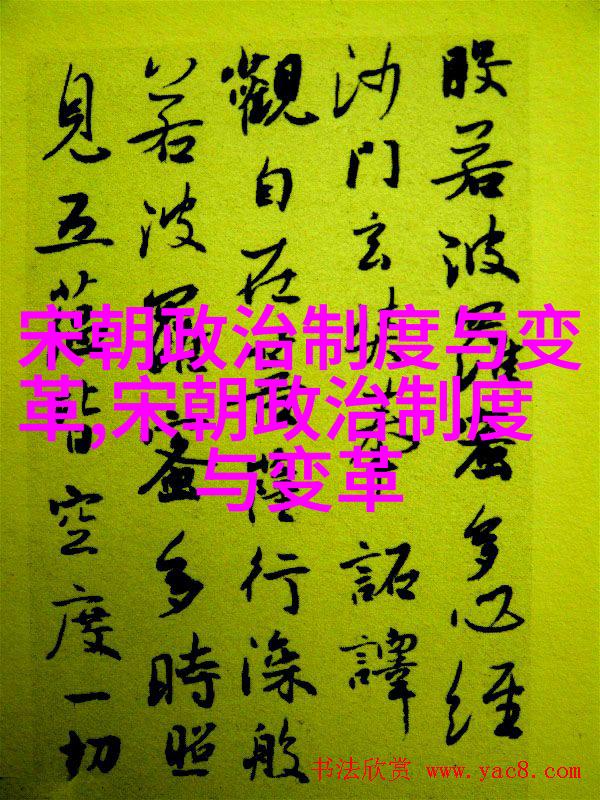 般若波羅蜜多心經
沙門玄奘奉 詔譯
觀自在菩薩行深般
若波羅蜜多時照
見五蘊皆空度一切
宋朝政治制度与变
革,宋朝政治制度
与变革
书法欣赏 www.yac8.com